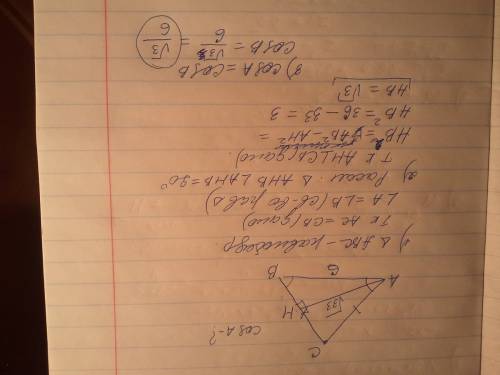 C
cos A - ?
H
√33
A
6
B
1) Δ ABC - равнобедр
т.к AC = CB (дано)
∠A = ∠B (св-во рав Δ)
2) Рассм. Δ AHB ∠AHB = 90°
т.к AH⊥CB (дано).
HB² = AB² - AH² =
HB² = 36 - 33 = 3
HB = √3
3) cos A = cos B
cos B = √3/6 = √3/6